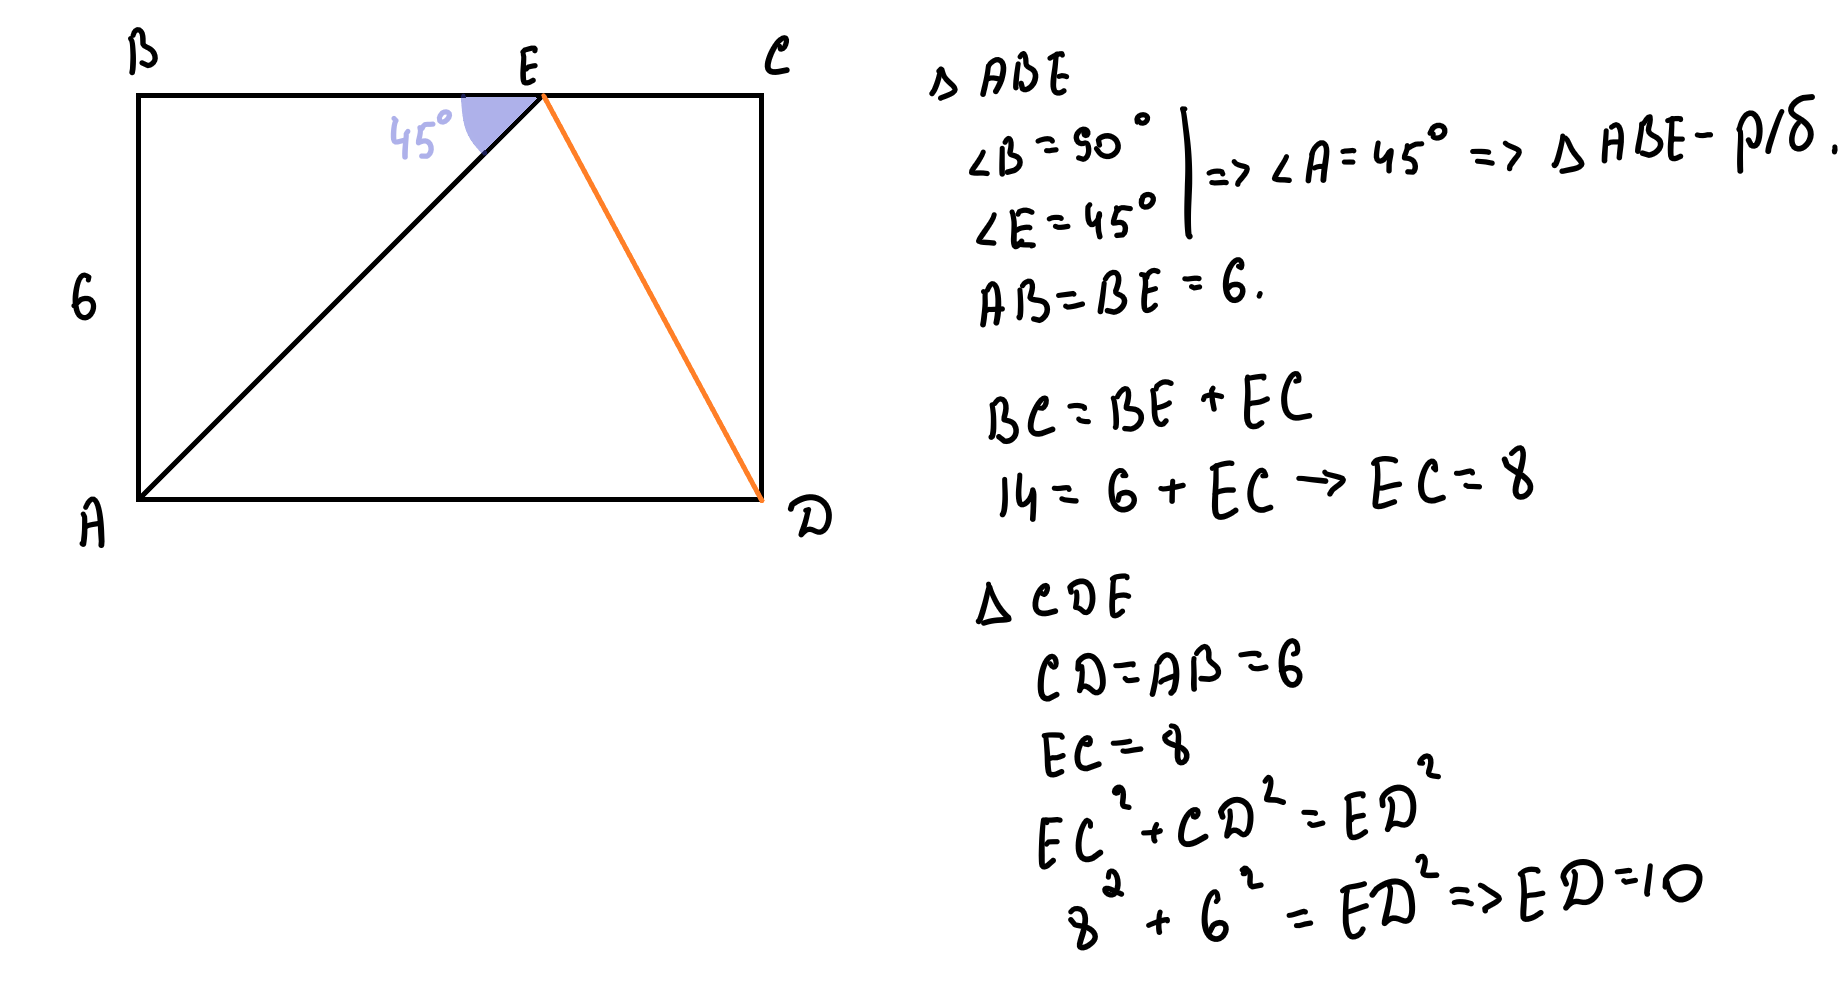 B
E
C
45°
6
A
D
Δ ABE
∠B = 90°
∠E = 45°
=> ∠A = 45° => Δ ABE - р/б.
AB = BE = 6.
BC = BE + EC
14 = 6 + EC → EC = 8
Δ CDE
CD = AB = 6
EC = 8
EC² + CD² = ED²
8² + 6² = ED² => ED = 10